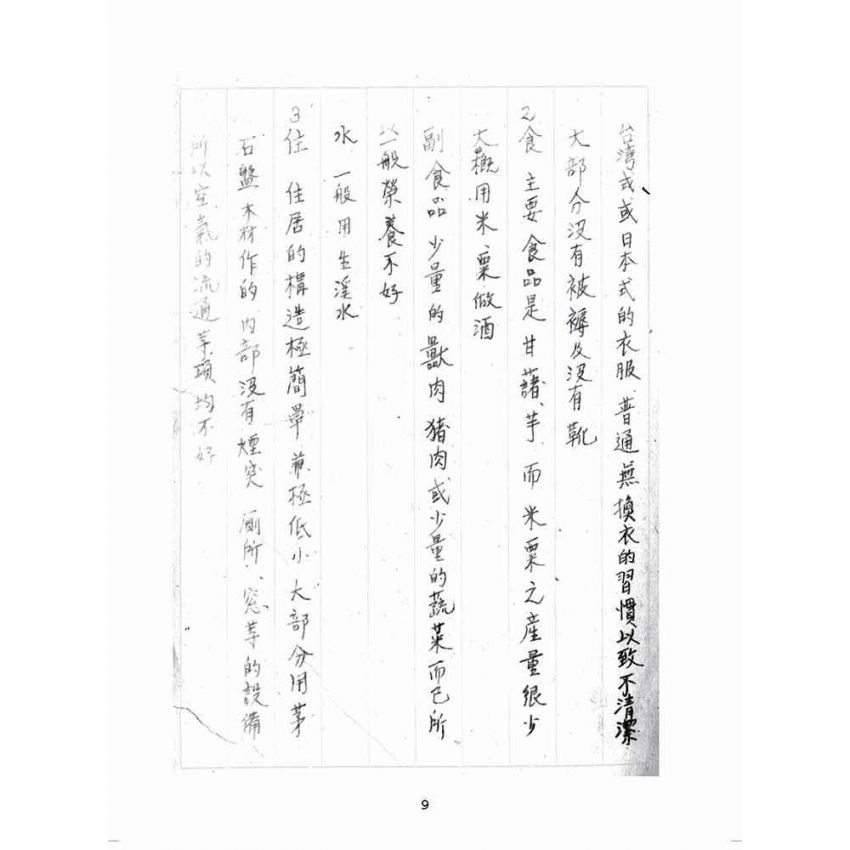 台湾式或日本式的衣服、普通無換衣的習慣以致不清潔
大部分沒有被褥及沒有靴
2食 主要食品是甘藷、芋 而米粟之産量很少
大概用米、粟做酒
副食品 少量的獸肉 猪肉或少量的蔬菜而已所
以一般榮養不好
水 一般用生溪水
3住 住居的構造極簡單 兼極低小 大部分用茅
石盤 木材作的 内部沒有煙突 厠所、窓等的設備
所以空氣的流通等項均不好
9